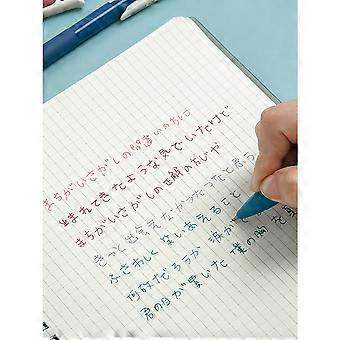 まちがいさがしの間違いの方に
生まれてきたような気でいたけど
まちがいさがしの正解の方じゃ
きっと出会えなかったと思う
ふさわしく 笑いあえること
何故だろうか 涙がで
君の目が貫いた 僕の胸を